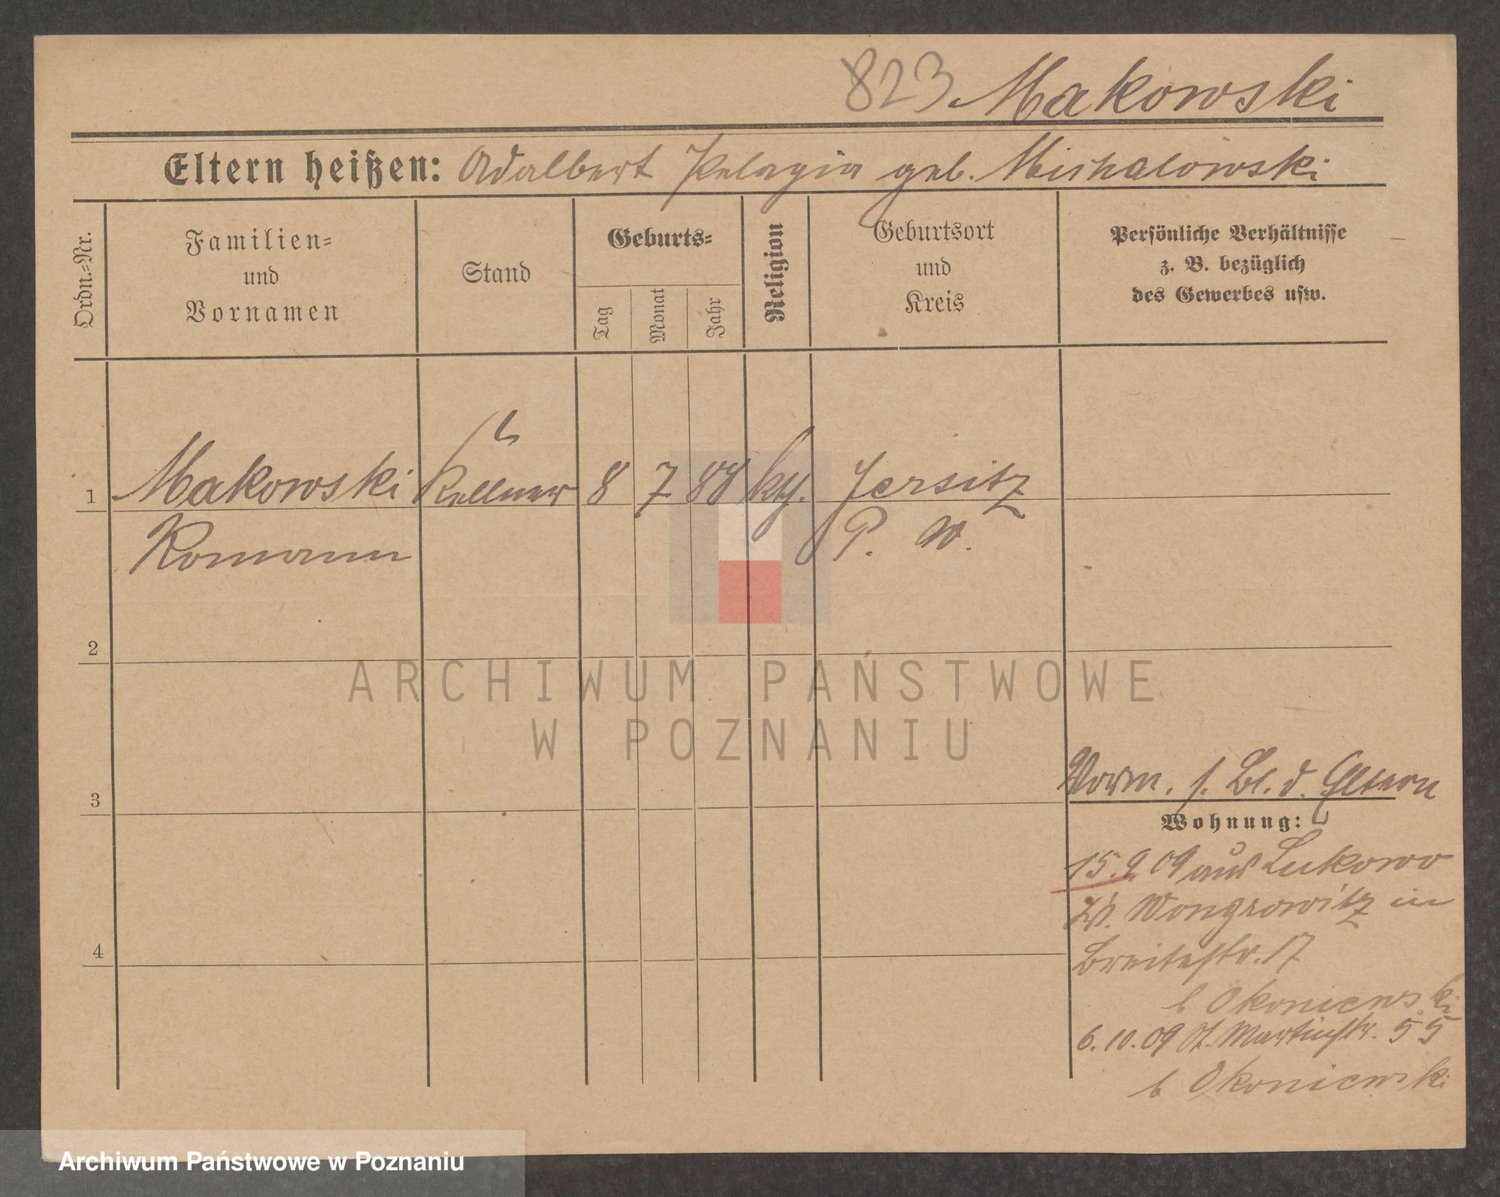 823 Makowski
Eltern heißen: Adalbert Pelagia geb. Michalowski
Ordn.-Nr.
Familien-
und
Vornamen
Stand
Geburts-
Tag
Monat
Jahr
Religion
Geburtsort
und
Kreis
Persönliche Verhältnisse
z. B. bezüglich
des Gewerbes usw.
1 Makowski Kellner 8 7 88 Jersitz
Romann P. W.
2
ARCHIWUM PAŃSTWOWE
W POZNANIU
Vorm. s. Bl. d. Eltern
3
Wohnung:
15.9.09 aus Lukowo
Wongrowitz in
4
Breitestr. 17
b Okoniewski
6.10.09 St. Martinstr. 55
b Okoniewski
Archiwum Państwowe w Poznaniu